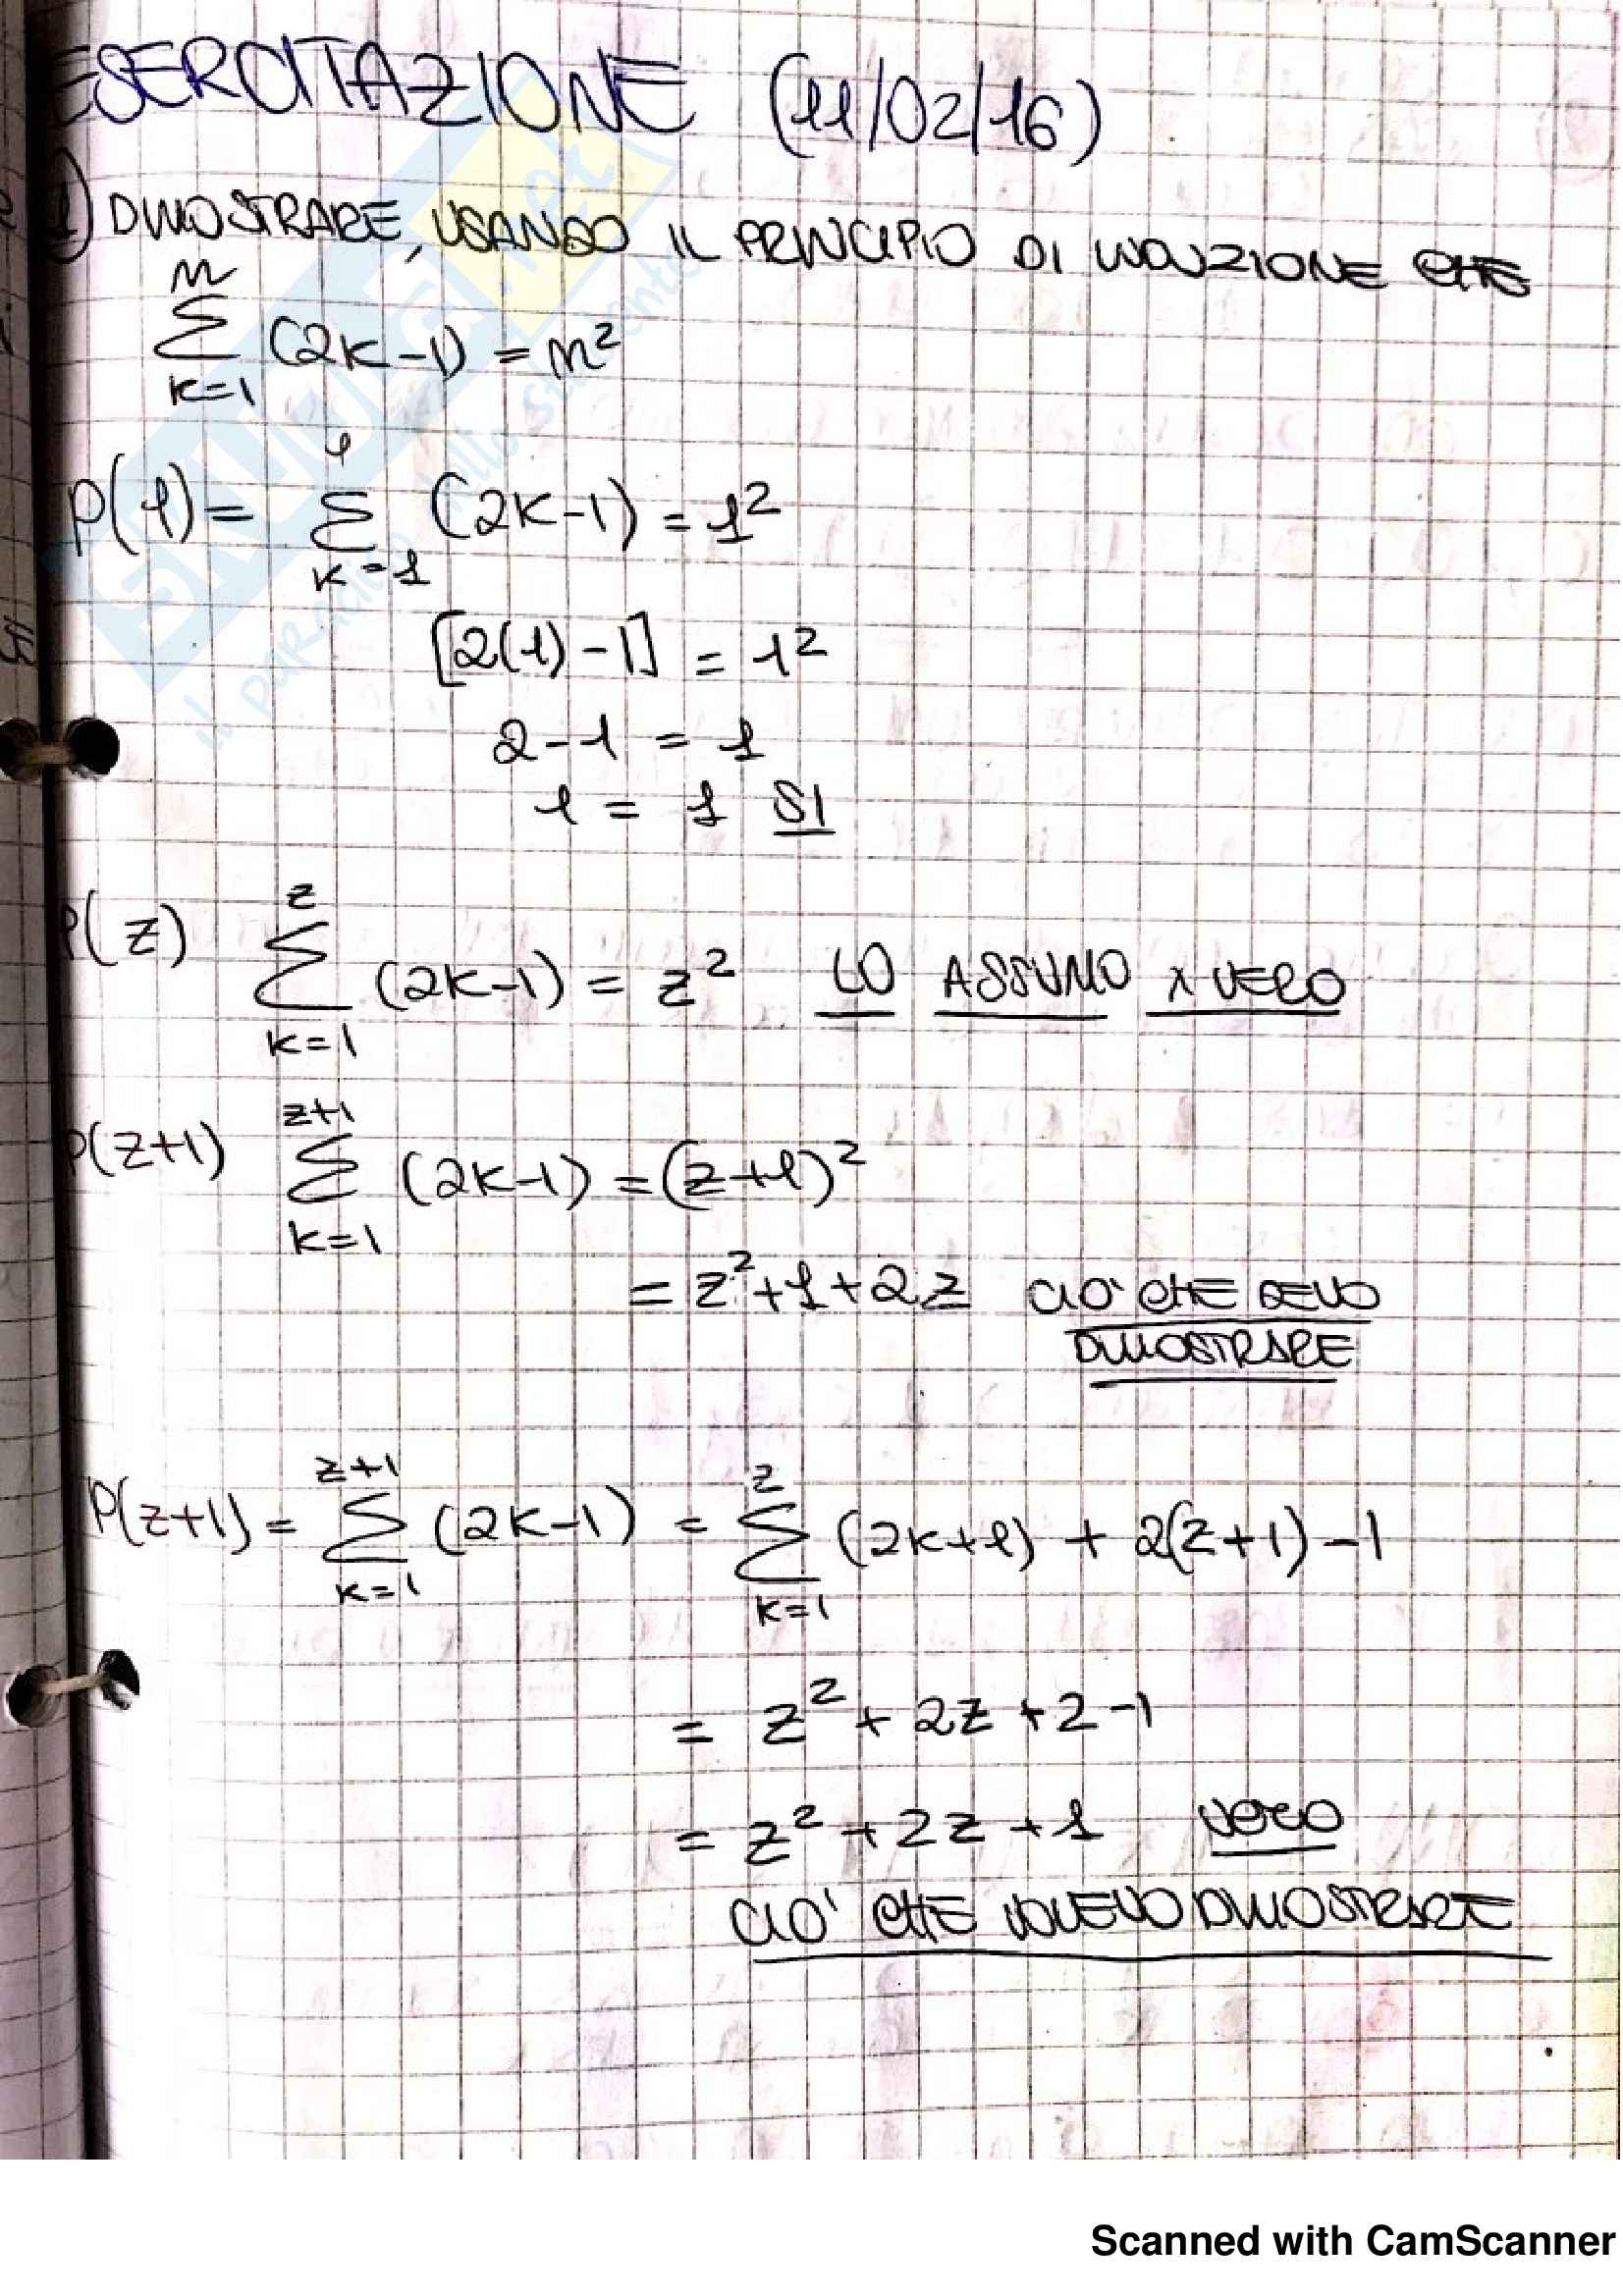 ESERCITAZIONE (11/02/16)
1) DIMOSTRARE, USANDO IL PRINCIPIO DI INDUZIONE CHE
n
∑ (2k-1) = n²
k=1
1
P(1) = ∑ (2k-1) = 1²
k=1
[2(1)-1] = 1²
2-1 = 1
1 = 1 SI
z
P(z) ∑ (2k-1) = z² LO ASSUMO x VERO
k=1
z+1
P(z+1) ∑ (2k-1) = (z+1)²
k=1
= z²+1+2z CIO' CHE DEVO
DIMOSTRARE
z+1 z
P(z+1) = ∑ (2k-1) = ∑ (2k+1) + 2(z+1)-1
k=1 k=1
= z² + 2z + 2-1
= z² + 2z + 1 VERO
CIO' CHE VOLEVO DIMOSTRARE
Scanned with CamScanner